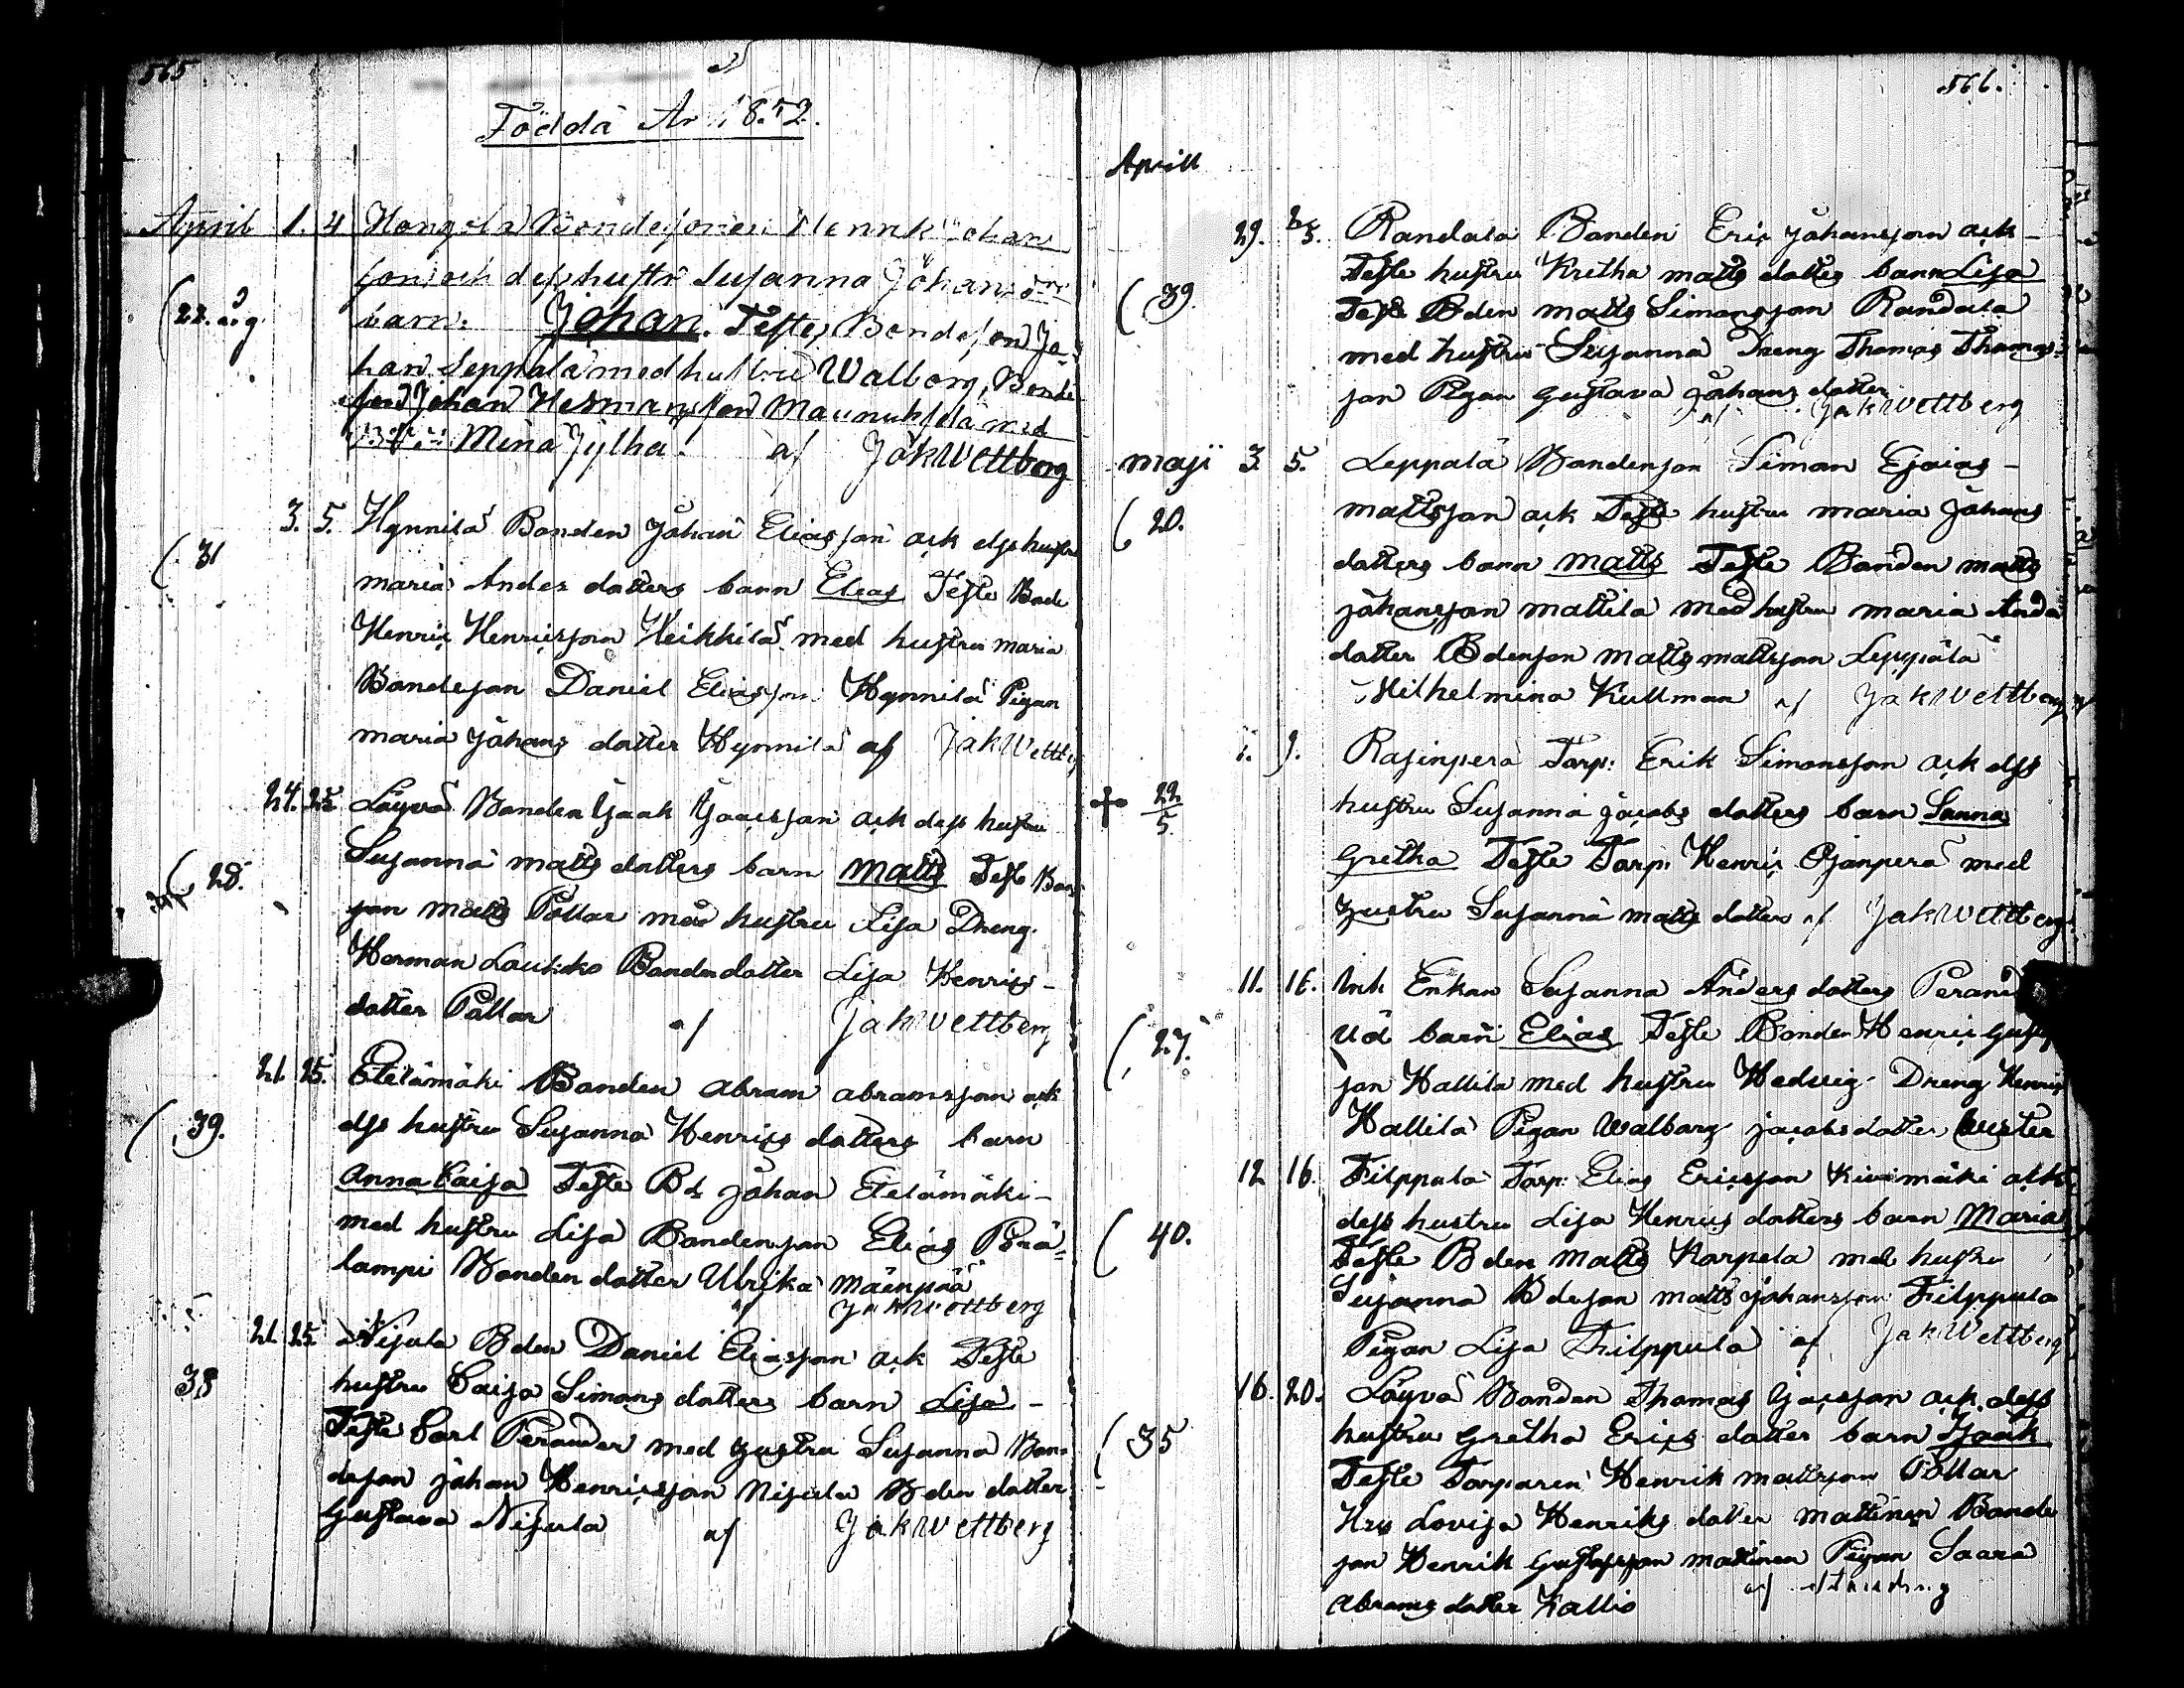 565
Födda År 1852.
April 1. 4 Bondesonen Henrik Johan
son och dess hustr Susanna Johans dors
22. åg. barn: Johan. Teste, Bondeson Jo-
han Seppälä med hustru Walborg, Bonde
son Johan Hermansson Maunuksela med
Mina Jylhä. af Jak Wettberg
3. 5. Hynnilä Bonden Johan Eliasson ock dess hustru
31 maria Anders dotters barn Elias Teste Bonde
Henric Henricsson Heikkilä med hustru maria
Bondeson Daniel Eliasson Hynnilä Pigan
maria Johans dotter Hynnilä af Jak Wettberg
24. 25. Löyvä Bonden Isaak Isacsson ock dess hustru
28. Susanna matts dotters barn Matts Teste Bon
son matts Pollar med hustru Lisa Dreng
Herman Laukko Bonden dotter Lisa Henrics-
dotter Pollar af Jak Wettberg
21. 25. Etelämäki Bonden abram abramsson ock
39. dess hustru Susanna Henrics dotters barn
Anna Caisa Teste Bd Johan Etelämäki-
med hustru Lisa Bondenson Elias Perä-
lampi Bonden dotter Ulrika Mäenpää
af Jak Wettberg
21. 25. Nisula Bden Daniel Eliasson ock Teste
38 hustru Caisa Simons dotters barn Lisa-
Teste Carl Perander med hustru Susanna Bon-
deson Johan Henricsson Nisula Bden dotter
Gustava Nisula af Jak Wettberg
566.
Aprill
29. Randala Bonden Eric Johansson ock-
Teste hustru Kretha matts dotters barn Lisa
39. Teste Bden matts Simonsson Randala
med hustru Susanna Dreng Thomas Thomas-
son Pigan Gustava Johans dotter
af Jak Wettberg
maji 3. 5. Leppälä Bondenson Simon Esaias-
20. mattsson ock Teste hustru maria Johans
dotters barn Matts Teste Bonden matts
Johansson mattila med hustru maria Anders
dotter Bdenson matts mattsson Leppälä
Wilhelmina Kullman af Jak Wettberg
7. 9. Rasinperä Torp: Erik Simonsson ock dess
22/5 hustru Susanna Jacobs dotters barn Sanna
Gretha Teste Torp: Henric Ojanperä med
hustru Susanna matts dotter af Jak Wettberg
11. 16. Inh Enkan Susanna Anders dotters
27. Uä barn Elias Teste Bonden Henric Gustaf
son Hallila med hustru Hedvig Dreng Henric
Hallila Pigan Walborg Jacobs dotter
12 16. Filppula Torp: Elias Ericsson Kivimäki ock
40. dess hustru Lisa Henrics dotters barn Maria
Teste Bden Matts Karpela med hustru
Susanna Bdeson matts Johansson Filppula
Pigan Lisa Filppula af Jak Wettberg
16. 20. Löyvä Bonden Thomas Isacsson ock dess
35 hustru Gretha Erics dotter barn Isaak
Teste Torparen Henrik mattsson Pollar
Hus Lovisa Henriks dotter mattinen Bonde
son Henrik Gustafsson mattinen Pigan Saara
Abrams dotter Kallio af